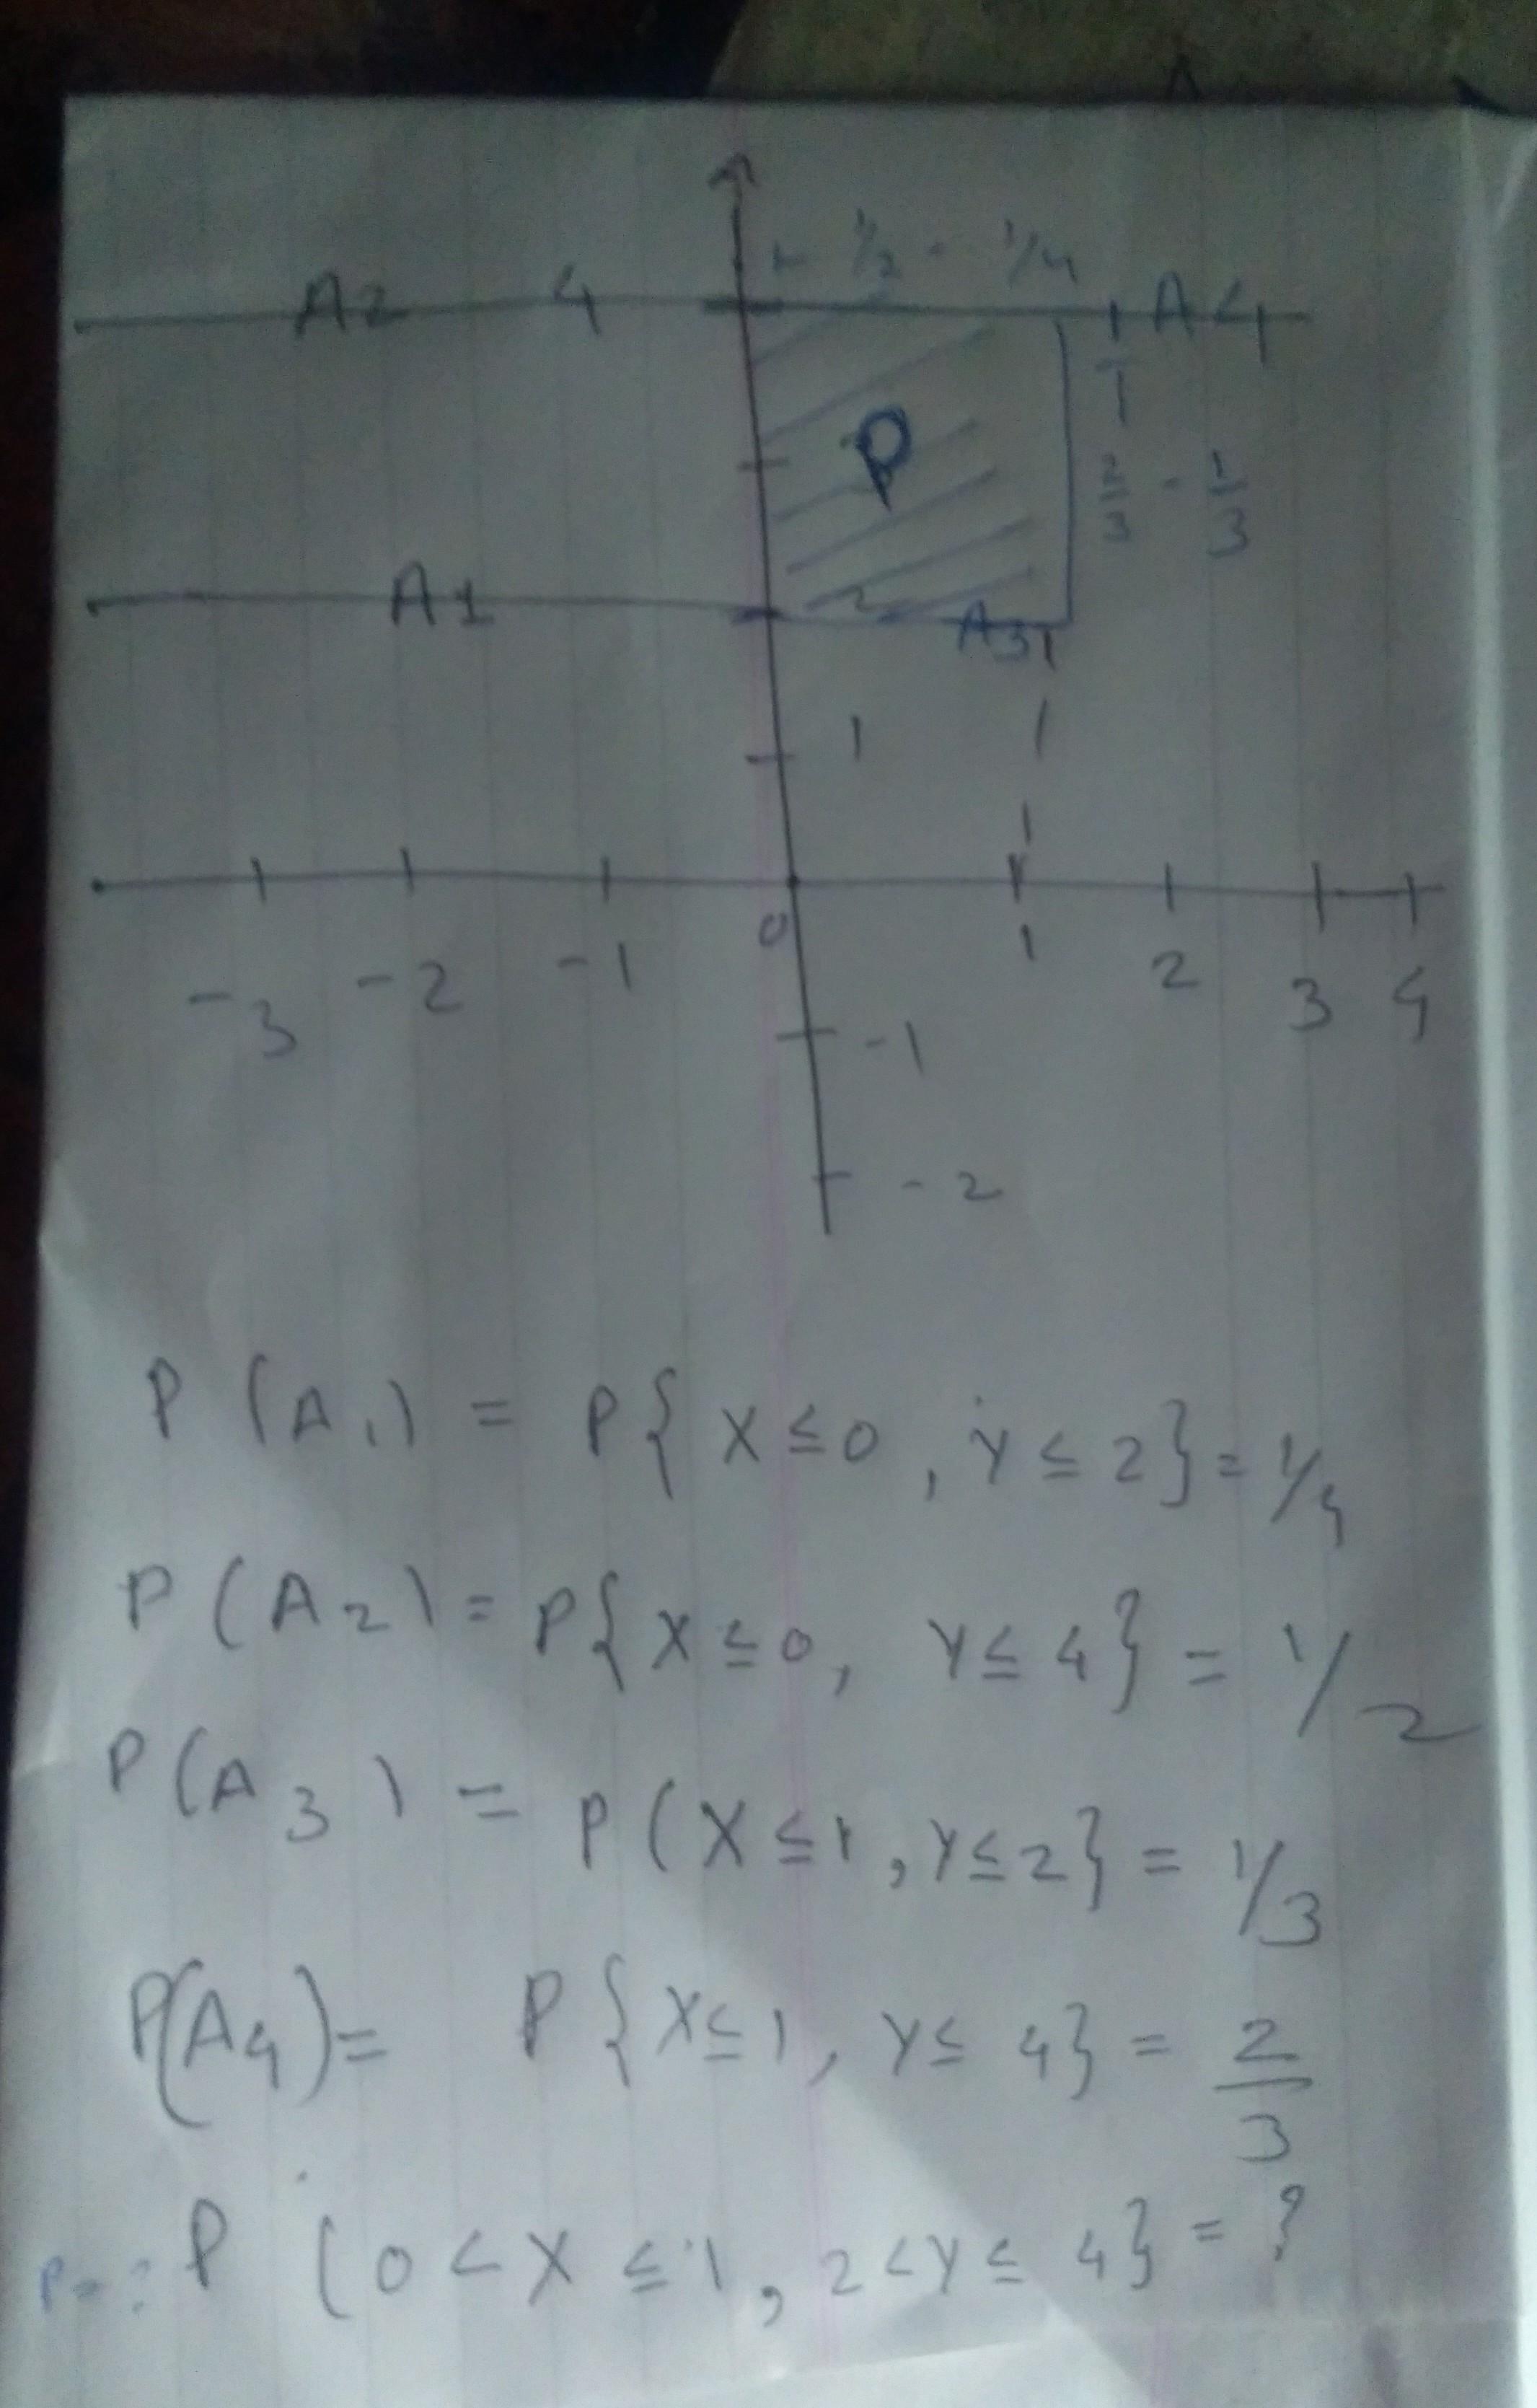 1/2 - 1/4
A2 4 A4
P
2/3 - 1/3
A1
2
A3
1
0
-3 -2 -1 1 2 3 4
-1
-2
P(A1) = P{X ≤ 0, Y ≤ 2} = 1/4
P(A2) = P{X ≤ 0, Y ≤ 4} = 1/2
P(A3) = P(X ≤ 1, Y ≤ 2} = 1/3
P(A4) = P{X ≤ 1, Y ≤ 4} = 2/3
P (0 < X ≤ 1, 2 < Y ≤ 4} = ?